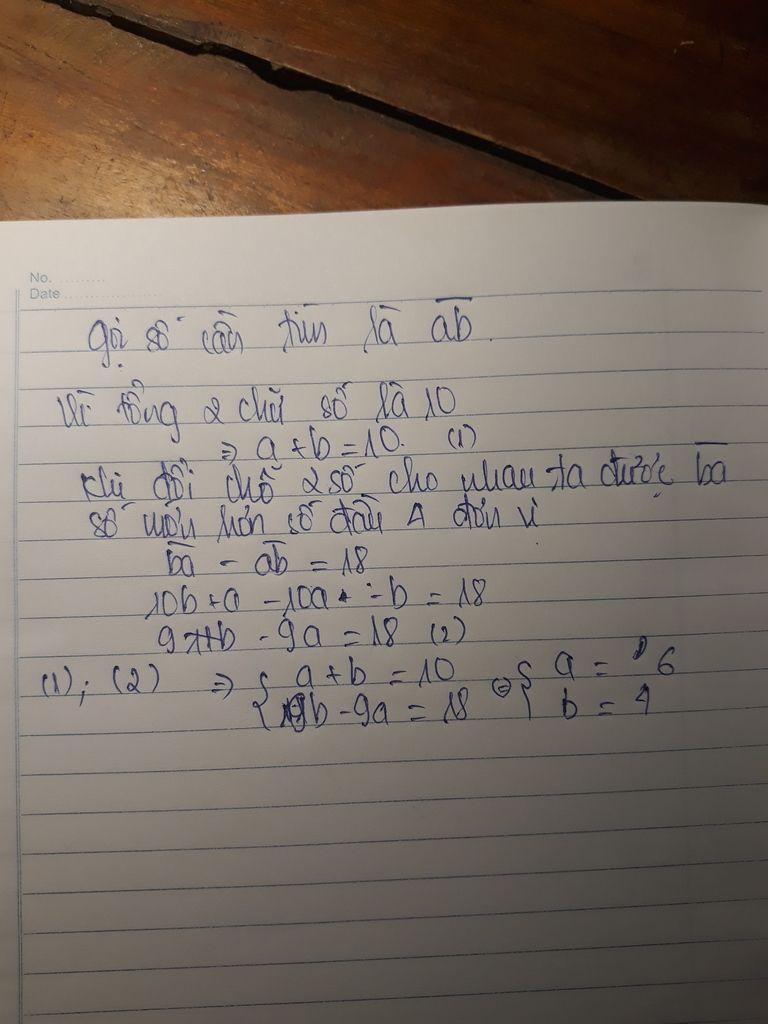 No. ..........
Date ....................
Gọi số cần tìm là ab.
Vì tổng 2 chữ số là 10
⇒ a + b = 10. (1)
Khi đổi chỗ 2 số cho nhau ta được ba
số mới hơn số đầu 4 đơn vị
ba - ab = 18
10b + a - 10a - b = 18
9b - 9a = 18 (2)
(1); (2) ⇒ { a + b = 10 ⇔ { a = 6
{ 9b - 9a = 18 { b = 4